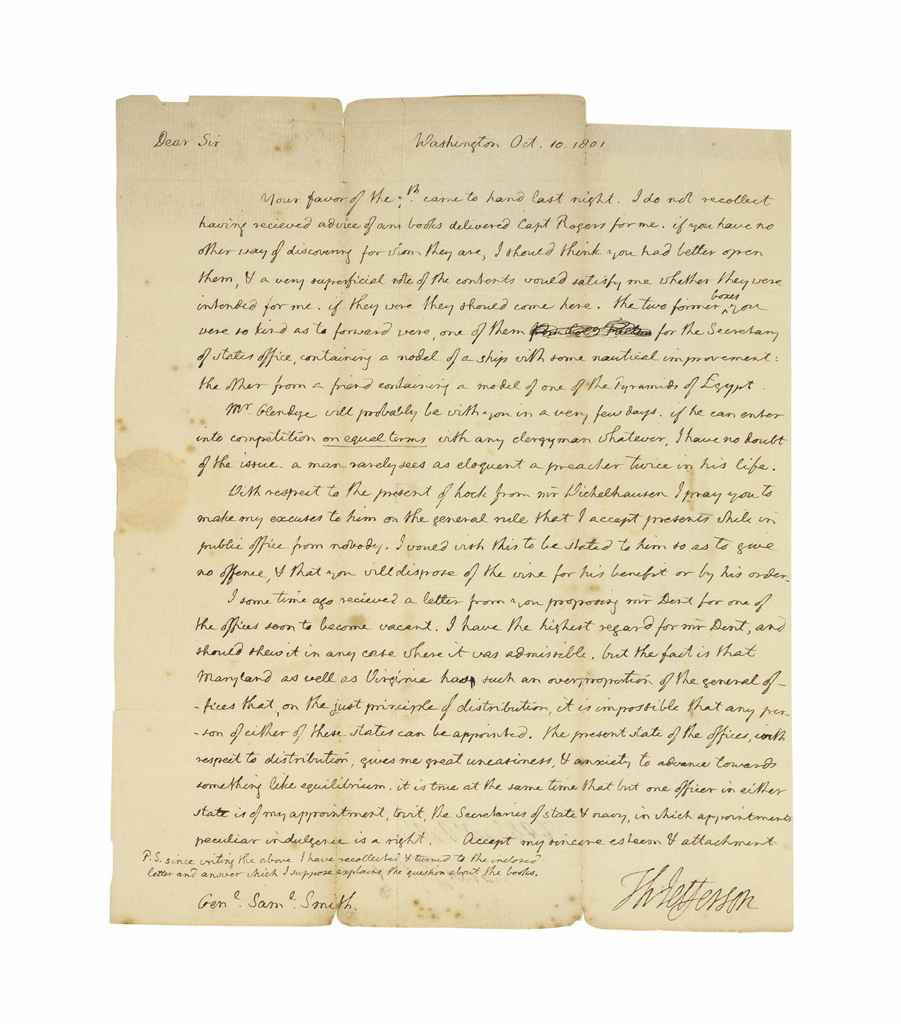 Dear Sir Washington Oct. 10. 1801
Your favor of the th. came to hand last night. I do not recollect
having recieved advice of any books delivered Capt Rogers for me. if you have no
other way of discovering for whom they are, I should think you had better open
them, & a very superficial note of the contents would satisfy me whether they were
intended for me. if they were they should come here. the two former boxes you
were so kind as to forward were, one of them for the Secretary
of state's office, containing a model of a ship with some nautical improvement:
the other from a friend containing a model of one of the Pyramids of Egypt.
Mr Glendye will probably be with you in a very few days. if he can enter
into competition on equal terms with any clergyman whatever, I have no doubt
of the issue. a man rarely sees as eloquent a preacher twice in his life.
With respect to the present of hock from mr Wichelhausen I pray you to
make my excuses to him on the general rule that I accept presents while in
public office from nobody. I would wish this to be stated to him so as to give
no offence, & that you will dispose of the wine for his benefit or by his order.
I some time ago recieved a letter from you proposing mr Dent for one of
the offices soon to become vacant. I have the highest regard for mr Dent, and
should shew it in any case where it was admissible. but the fact is that
Maryland as well as Virginia has such an overproportion of the general of-
-fices that, on the just principle of distribution, it is impossible that any per-
-son of either of these states can be appointed. the present state of the offices, with
respect to distribution, gives me great uneasiness, & anxiety to advance towards
something like equilibrium. it is true at the same time that but one officer in either
state is of my appointment, towit, the Secretaries of state & navy, in which appointments
peculiar indulgence is a right. Accept my sincere esteem & attachment
P.S. since writing the above I have recollected & turned to the inclosed
letter and answer which I suppose explains the question about the books.
Th: Jefferson
Genl. Saml. Smith.